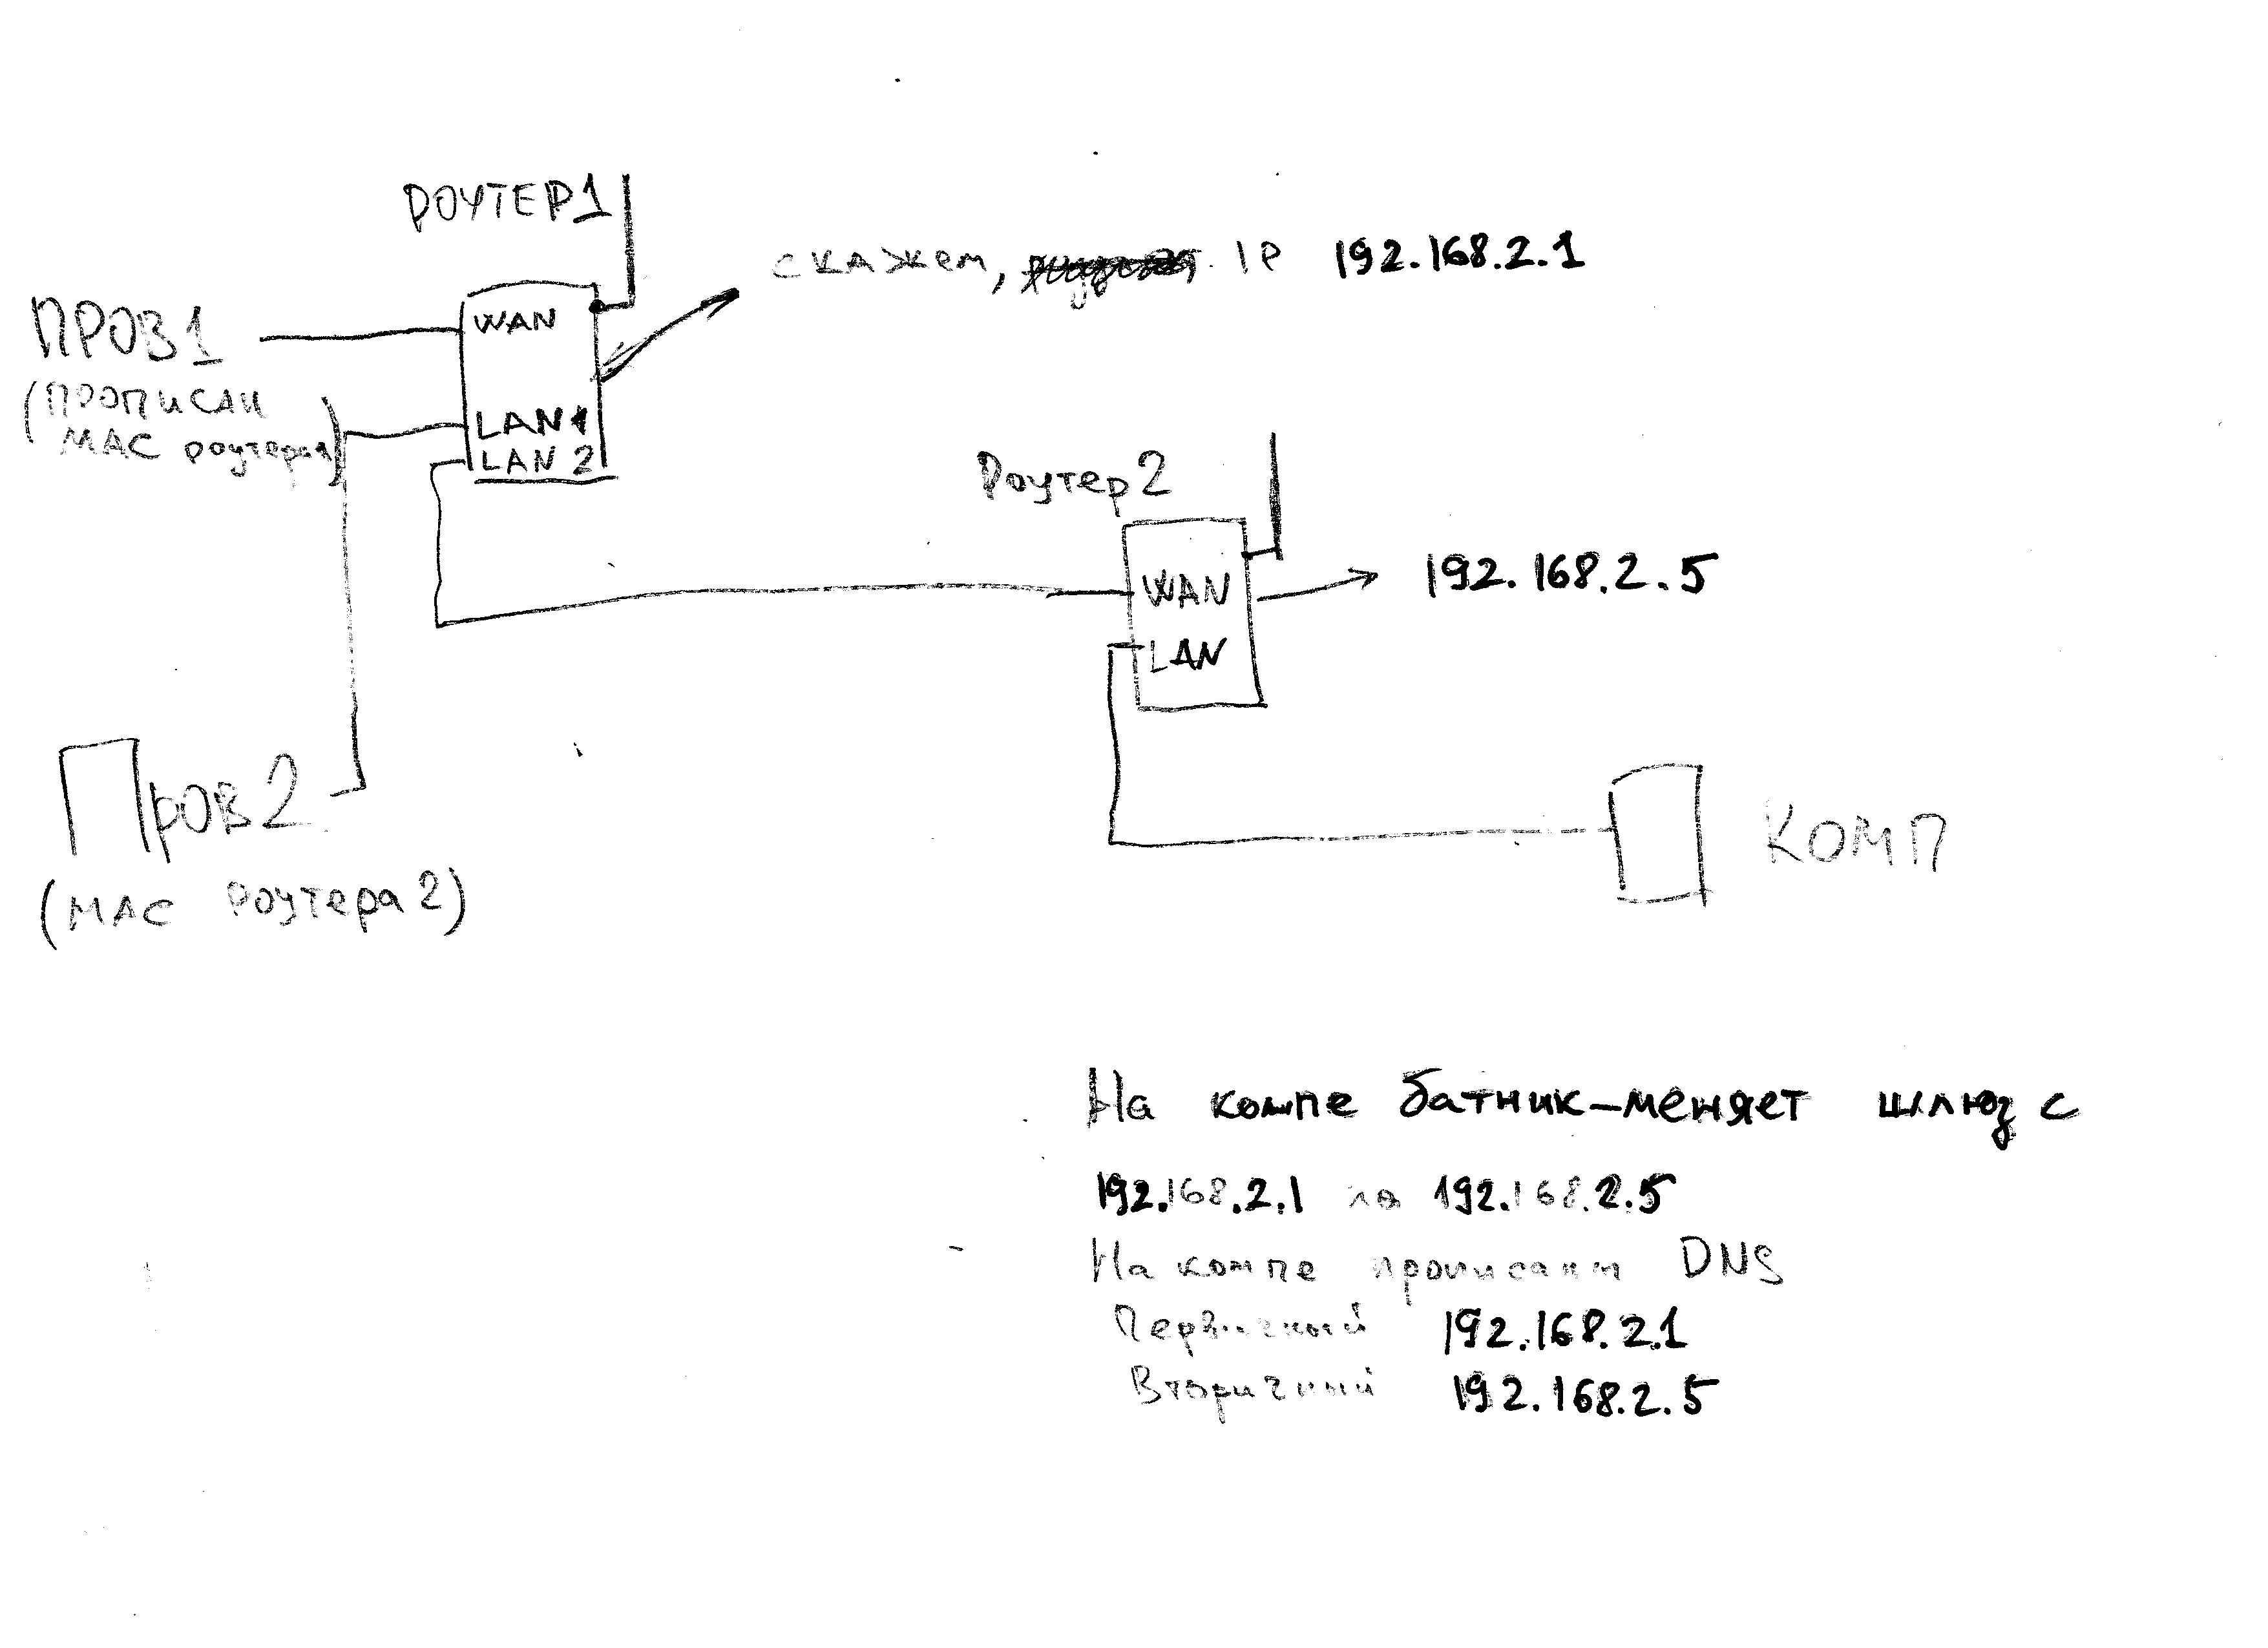 РОУТЕР1
скажем, IP 192.168.2.1
WAN
ПРОВ1
(ПРОПИСАН
МАС роутера1)
LAN1
LAN2
Роутер2
192.168.2.5
WAN
LAN
Пров2
КОМП
(МАС роутера2)
На компе батник-меняет шлюз с
192.168.2.1 на 192.168.2.5
На компе прописаны DNS
Первичный 192.168.2.1
Вторичный 192.168.2.5